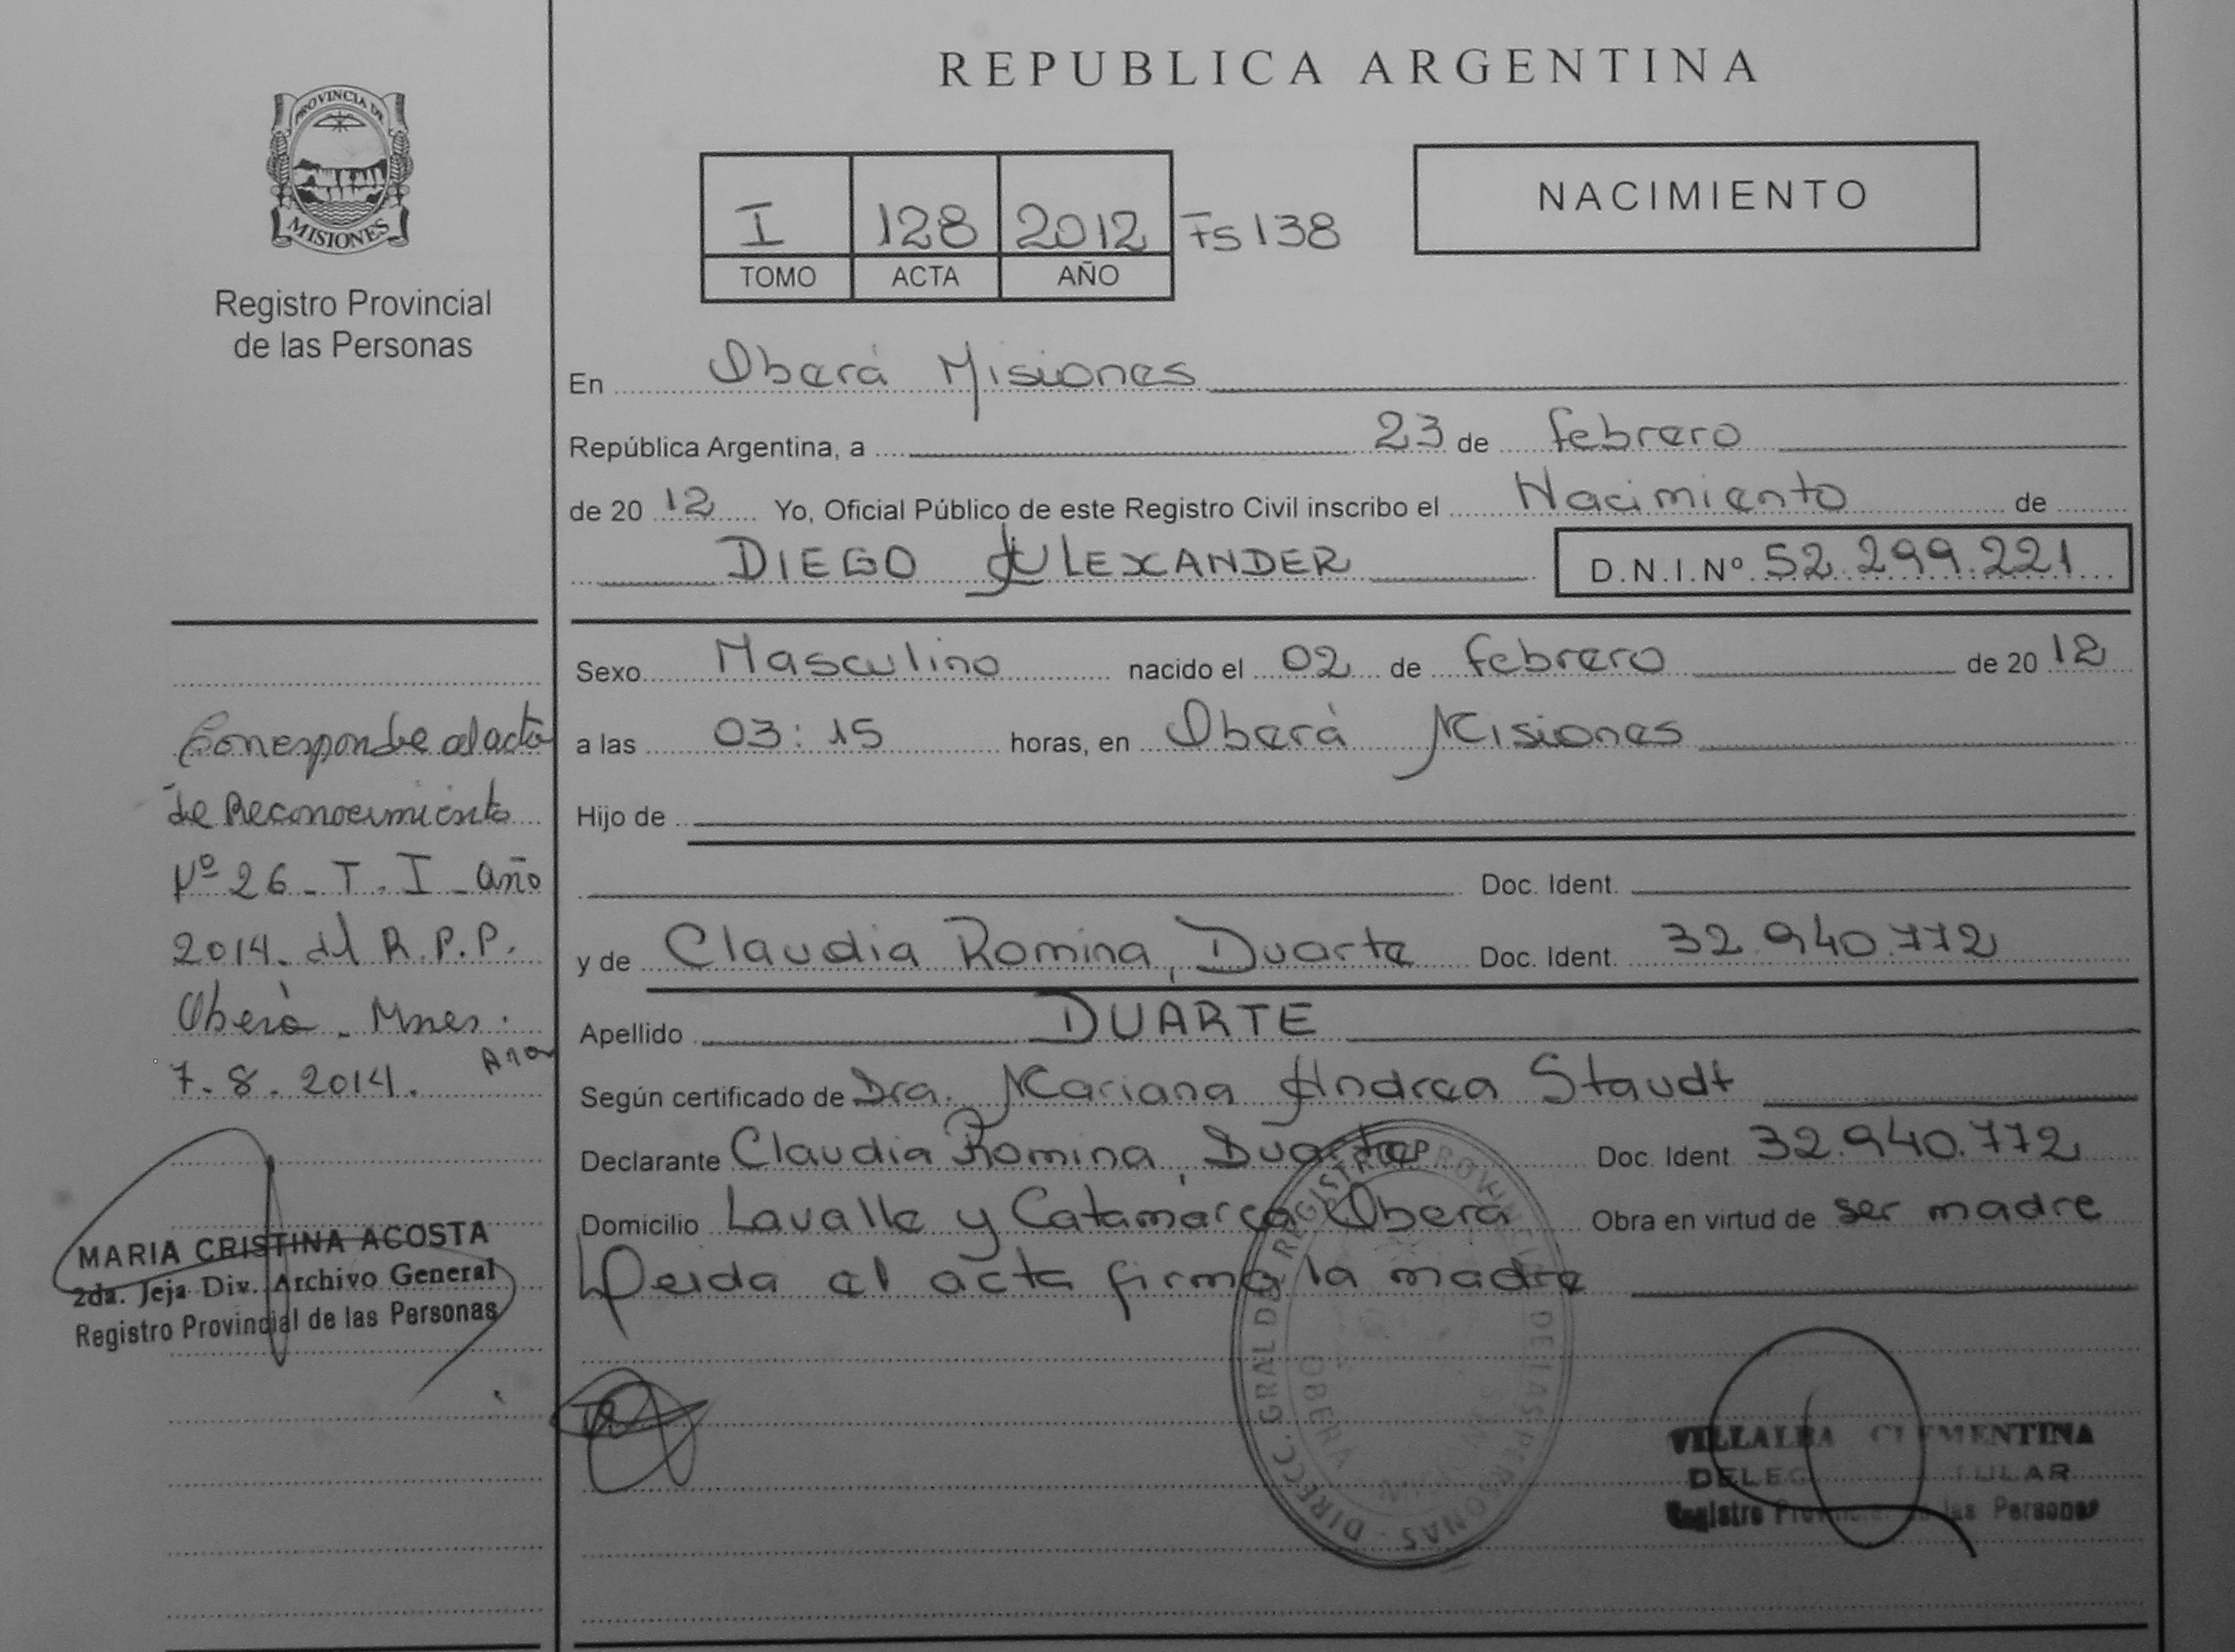 REPUBLICA ARGENTINA
PROVINCIA DE
MISIONES
Registro Provincial
de las Personas
I 128 2012 Fs 138
TOMO ACTA AÑO
NACIMIENTO
En Oberá Misiones
República Argentina, a 23 de febrero
de 20 12 Yo, Oficial Público de este Registro Civil inscribo el Nacimiento de
DIEGO ALEXANDER D.N.I.Nº 52.299.221
Sexo Masculino nacido el 02 de febrero de 20 12
a las 03:15 horas, en Oberá Misiones
Hijo de
Doc. Ident.
y de Claudia Romina, Duarte Doc. Ident. 32.940.772
Apellido DUARTE
Según certificado de Dra. Mariana Andrea Staudt
Declarante Claudia Romina, Duarte Doc. Ident 32.940.772
Domicilio Lavalle y Catamarca Oberá Obra en virtud de ser madre
Leida el acta firma la madre
Corresponde al acta
de Reconocimiento
Nº 26 - T. I - año
2014. del R.P.P.
Oberá - Mnes.
7.8.2014.
MARIA CRISTINA ACOSTA
2da. Jeja Div. Archivo General
Registro Provincial de las Personas
DIRECC. GRAL DEL REGISTRO PROVINCIAL DE LAS PERSONAS
OBERA
VILLALBA CLEMENTINA
Registro Provincial de las Personas